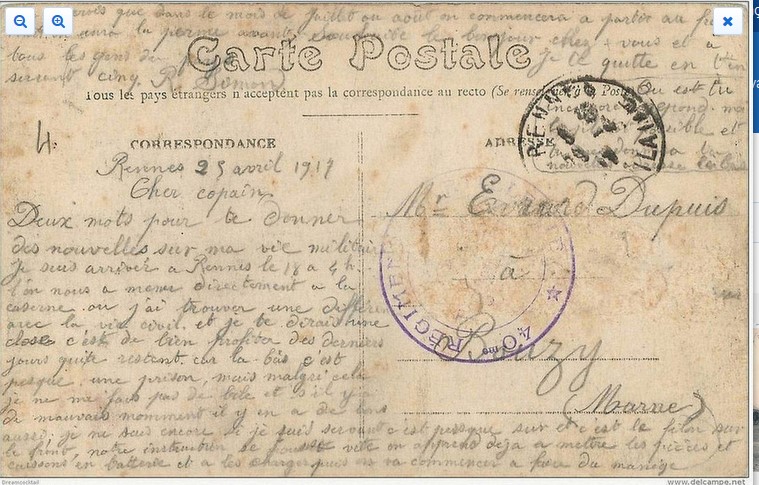 que dans le mois de Juillet ou août on commencera a partir au
la perme avant. Souhaite le bonjour chez vous et a
tous les gens de
Je te quitte en t'en
serrant cinq. R. Simon
Carte Postale
Tous les pays étrangers n'acceptent pas la correspondance au recto (Se renseigner à la Poste)
Ou est tu
incorporé répond moi
possible et
4.
CORRESPONDANCE
ADRESSE
RENNES
Rennes 25 avril 1917
Cher copain
Deux mots pour te donner
des nouvelles sur ma vie militaire
je suis arriver a Rennes le 18 a 4 h.
l'on nous a mener directement a la
caserne. ou j'ai trouver une différen
avec la vie civil. et je te dirais une
chose c'est de bien profiter des derniers
jours qui te restent. car la bis c'est
presque. une prison, mais malgré cela
je ne me fais pas de bile et s'il y a
de mauvais momment il y en a de bons
aussi, je ne sais encore si je suis servant c'est presque sur et c'est le filon sur
le front, notre instruction se pousse vite on apprend déja a mettre les pièces et
caissons en batterie et a les charger puis on va commencer a faire du manège
Mr Evrard Dupuis
à
Bouzy
(Marne)
40me REGIMENT
© delcampe.net
Dreamoschtail